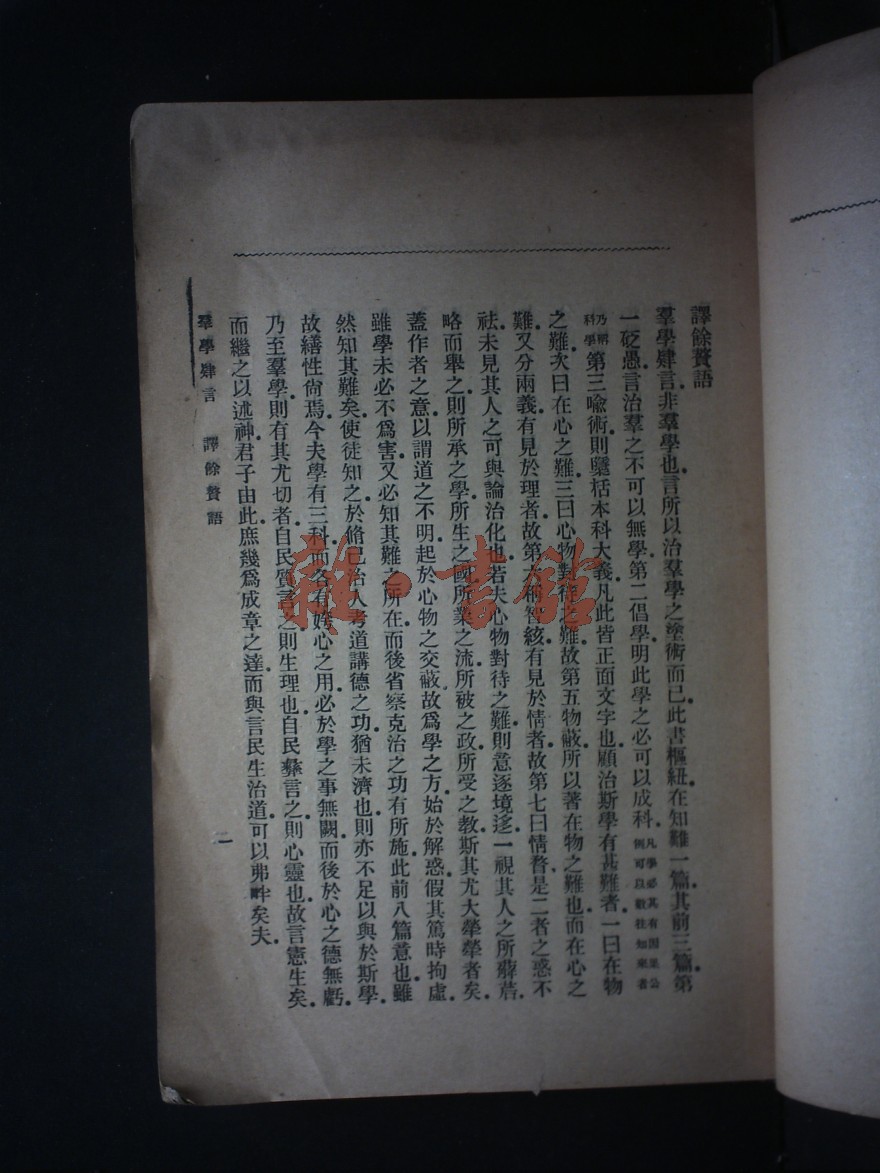 譯餘贅語
羣學肄言非羣學也言所以治羣學之塗術而已此書樞紐在知難一篇其前三篇第
一砭愚言治羣之不可以無學第二倡學明此學之必可以成科凡學必其有因果公例可以數往知來者
乃稱科學第三喻術則檃括本科大義凡此皆正面文字也顧治斯學有甚難者一曰在物
之難次曰在心之難三曰心物對待之難故第五物蔽所以著在物之難也而在心之
難又分兩義有見於理者故第六稱智絯有見於情者故第七曰情瞀是二者之惑不
祛未見其人之可與論治化也若夫心物對待之難則意逐境迻一視其人之所薜𦿆
略而舉之則所承之學所生之國所業之流所被之政所受之教斯其尤大犖犖者矣
蓋作者之意以謂道之不明起於心物之交蔽故爲學之方始於解惑假其篤時拘虛
雖學未必不爲害又必知其難之所在而後省察克治之功有所施此前八篇意也雖
然知其難矣使徒知之於脩己治人考道講德之功猶未濟也則亦不足以與於斯學
故繕性尙焉今夫學有三科而各有姱心之用必於學之事無闕而後於心之德無虧
乃至羣學則有其尤切者自民質言之則生理也自民彝言之則心靈也故言憲生矣
而繼之以述神君子由此庶幾爲成章之達而與言民生治道可以弗畔矣夫
羣學肄言 譯餘贅語
一
雜·書館